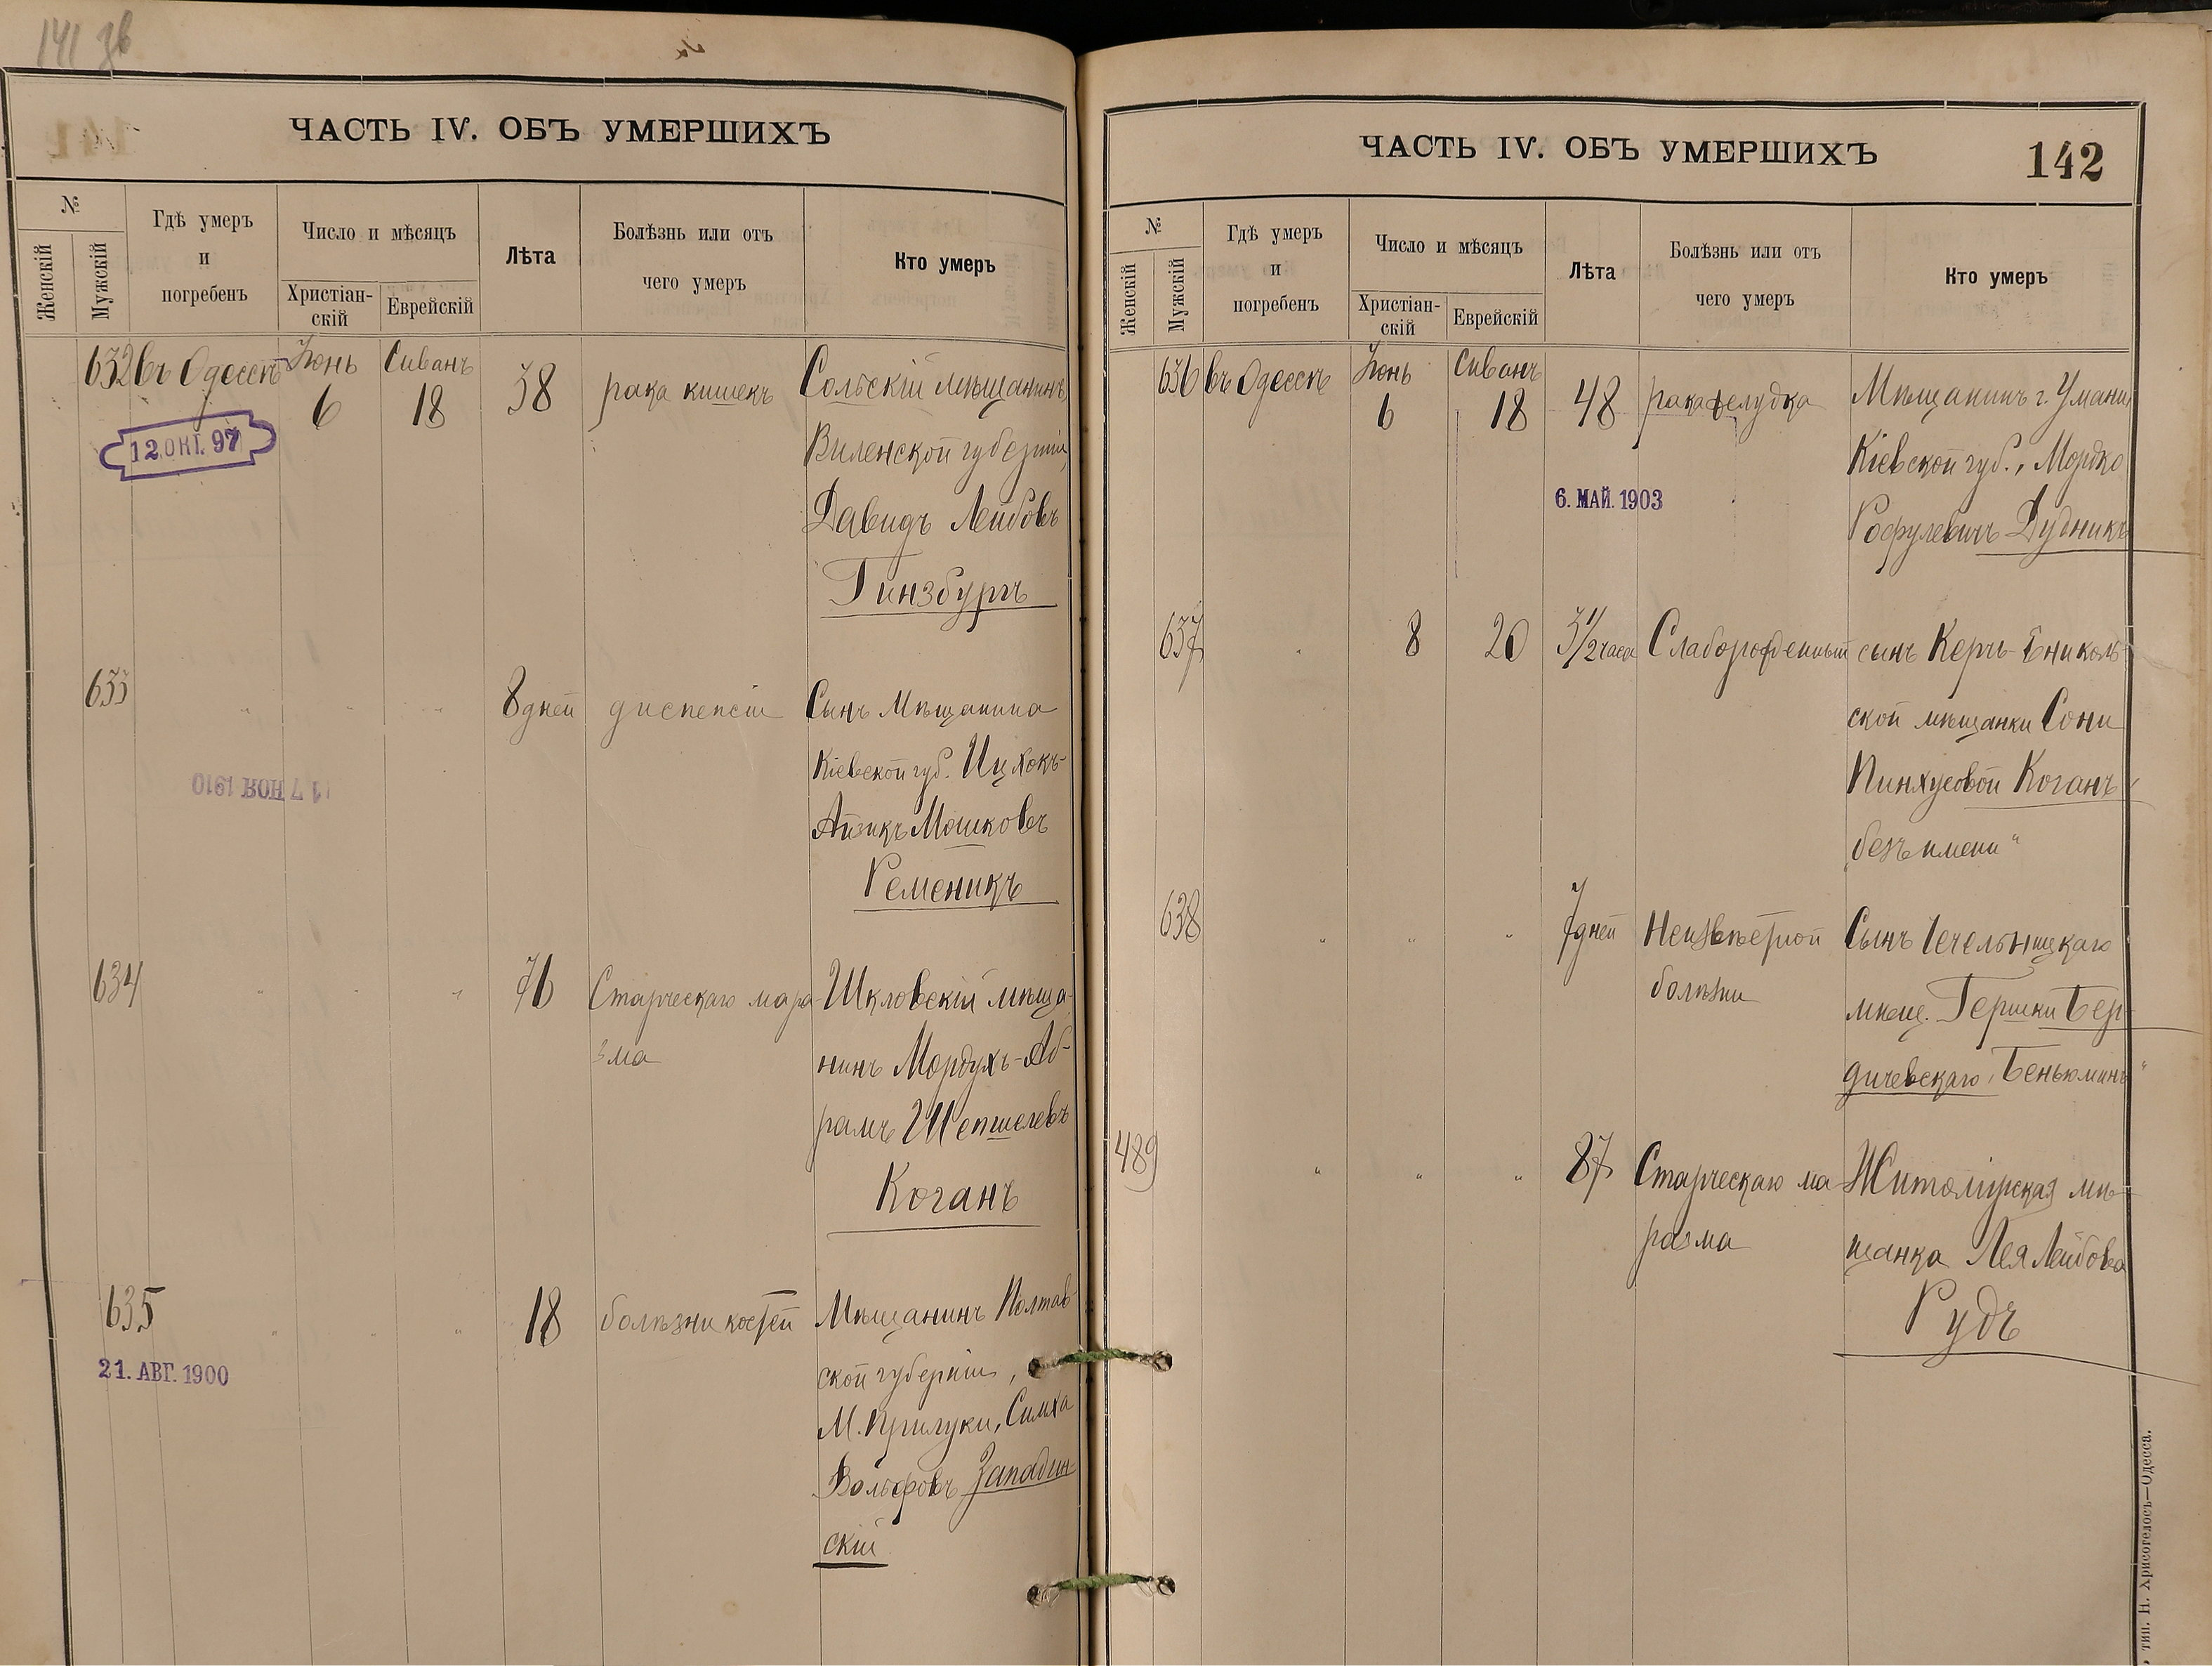 141 зв
ЧАСТЬ IV. ОБЪ УМЕРШИХЪ
№
Женскій
Мужскій
Гдѣ умеръ
и
погребенъ
Число и мѣсяцъ
Христіан-
скій
Еврейскій
Лѣта
Болѣзнь или отъ
чего умеръ
Кто умеръ
632 въ Одессѣ Іюнь 6 Сиванъ 18 38 рака кишекъ Сольскій мѣщанинъ
Виленской губерніи,
Давидъ Лейбовъ
Гинзбургъ
12. ОКТ. 97
633 " " " 8 дней диспепсіи Сынъ мѣщанина
Кіевской губ. Ицхокъ-
Айзикъ Мошковъ
Ременикъ
17 НОЯ 1910
634 " " " 76 Старческаго мара- Шкловскій мѣща-
зма нинъ Мордухъ-Аб-
рамъ Шепшелевъ
Коганъ
635 " " " 18 болѣзни костей Мѣщанинъ Полтав-
ской губерніи,
М. Прилуки, Симха
Вольфовъ Западин-
скій
21. АВГ. 1900
ЧАСТЬ IV. ОБЪ УМЕРШИХЪ
142
№
Женскій
Мужскій
Гдѣ умеръ
и
погребенъ
Число и мѣсяцъ
Христіан-
скій
Еврейскій
Лѣта
Болѣзнь или отъ
чего умеръ
Кто умеръ
636 въ Одессѣ Іюнь 6 Сиванъ 18 48 рака желудка Мѣщанинъ г. Умани
Кіевской губ., Мордко
Рофулевичъ Дубникъ
6. МАЙ. 1903
637 " 8 20 3 1/2 часа Слаборожденный сынъ Керчь-Ениколь-
ской мѣщанки Сони
Пинхусовой Коганъ
"безъ имени"
638 " " " 7 дней Неизвѣстной Сынъ Чечельницкаго
болѣзни мѣщ. Гершки Бер-
дичевскаго, Беньюминъ
489 " " " 87 Старческаго ма- Житомірская мѣ-
разма щанка Лея Лейбова
Рудъ
тип. Н. Хрисогелосъ—Одесса.